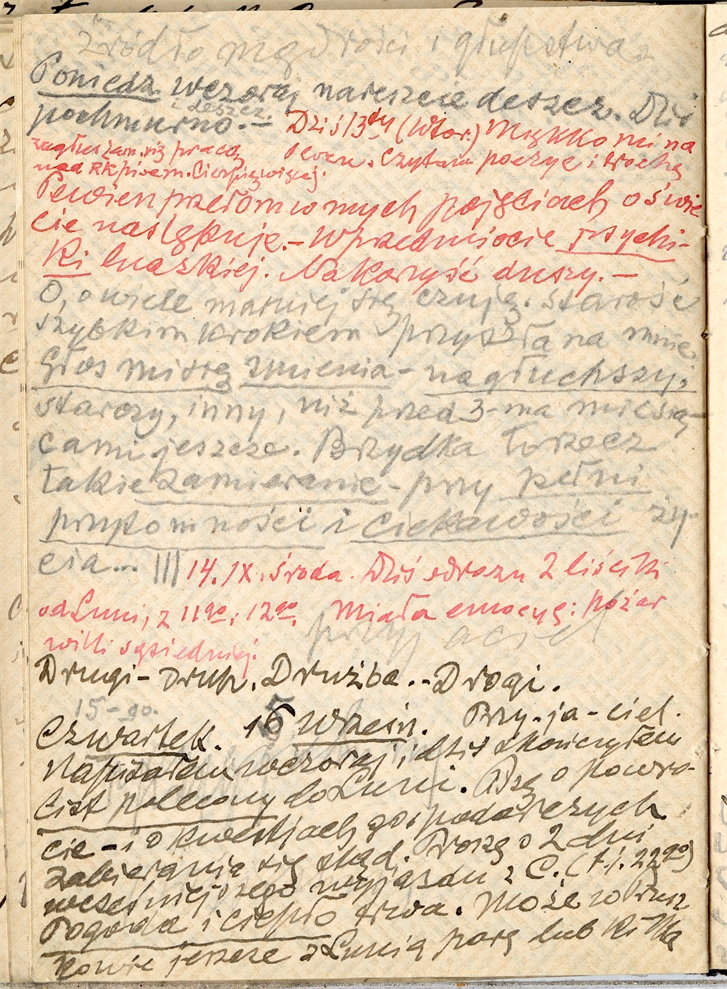 Źródło mądrości i głupstwa
Poniedz wczoraj nareszcie deszcz. Dziś
pochmurno. – i deszcz.
Dziś 13ty (Wtor.) Miękko mi na
zagłęziam się pracą
sercu. Czytam poezye i trochę
nad Rkpisem. Cierpię więcej.
Pewien przełom w mych pojęciach o świe
cie następuje. – W przedmiocie psychi-
ki ludzkiej. Na korzyść duszy. –
O, o wiele marniej się czuję. Starość
szybkim krokiem przyszła na mnie
Głos mi się zmienia – na głuchszy,
starczy, inny, niż przed 3-ma miesią-
cami jeszcze. Brzydka to rzecz
takie zamieranie – przy pełni
przytomności i ciekawości ży-
cia... III 14. IX. Środa. Dziś odrazu 2 liściki
od Luni, z 11go i 12go. Miała emocyę: pożar
willi sąsiedniej.
przyjaciel
Drugi – Druh. Drużba. – Drogi.
15-go.
Czwartek. 15 Wrześn. Przy-ja-ciel.
Napisałem wczoraj i dziś skończyłem
list polecony do Luni. Rzą o powro-
cie – i o kwestjach gospodarczych
zabierania się stąd. Proszę o 2 dni
wcześniejszego wyjazdu z C. (t.j. 22go)
Pogoda i ciepło trwa. Może
jeszcze z Lunią parę lub kilka